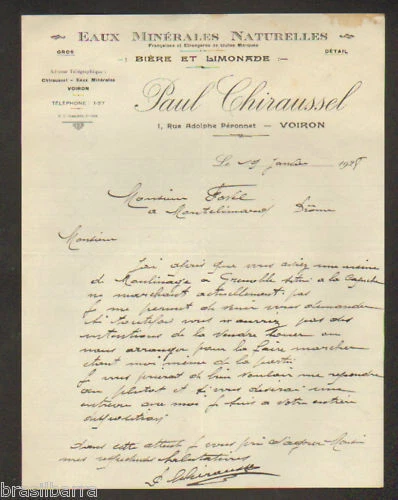 EAUX MINÉRALES NATURELLES
GROS
Françaises et Etrangères de toutes Marques
DÉTAIL
BIÈRE ET LIMONADE
Adresse Télégraphique :
Chiraussel - Eaux Minérales
VOIRON
TÉLÉPHONE 1-57
Paul Chiraussel
1, Rue Adolphe Péronnet - VOIRON
Le 19 Janvier 1928
Monsieur Forel
à Montélimard Drôme
Monsieur
J'ai appris que vous aviez une usine
de Moulinage à Grenoble située à la Capuche
ne marchant actuellement pas
Je me permet de venir vous demander
si toutefois vous n'auriez pas des
intentions de la vendre louer ou
nous arranger pour la faire marcher
étant moi même de la partie
Je vous prierai de bien vouloir me répondre
au plutot et si vous désirai une
entrevue avec moi Je suis a votre entière
disposition
Dans cette attente Je vous pri d'agréer Monsieur
mes salutations
P. Chiraussel
brasilbarra